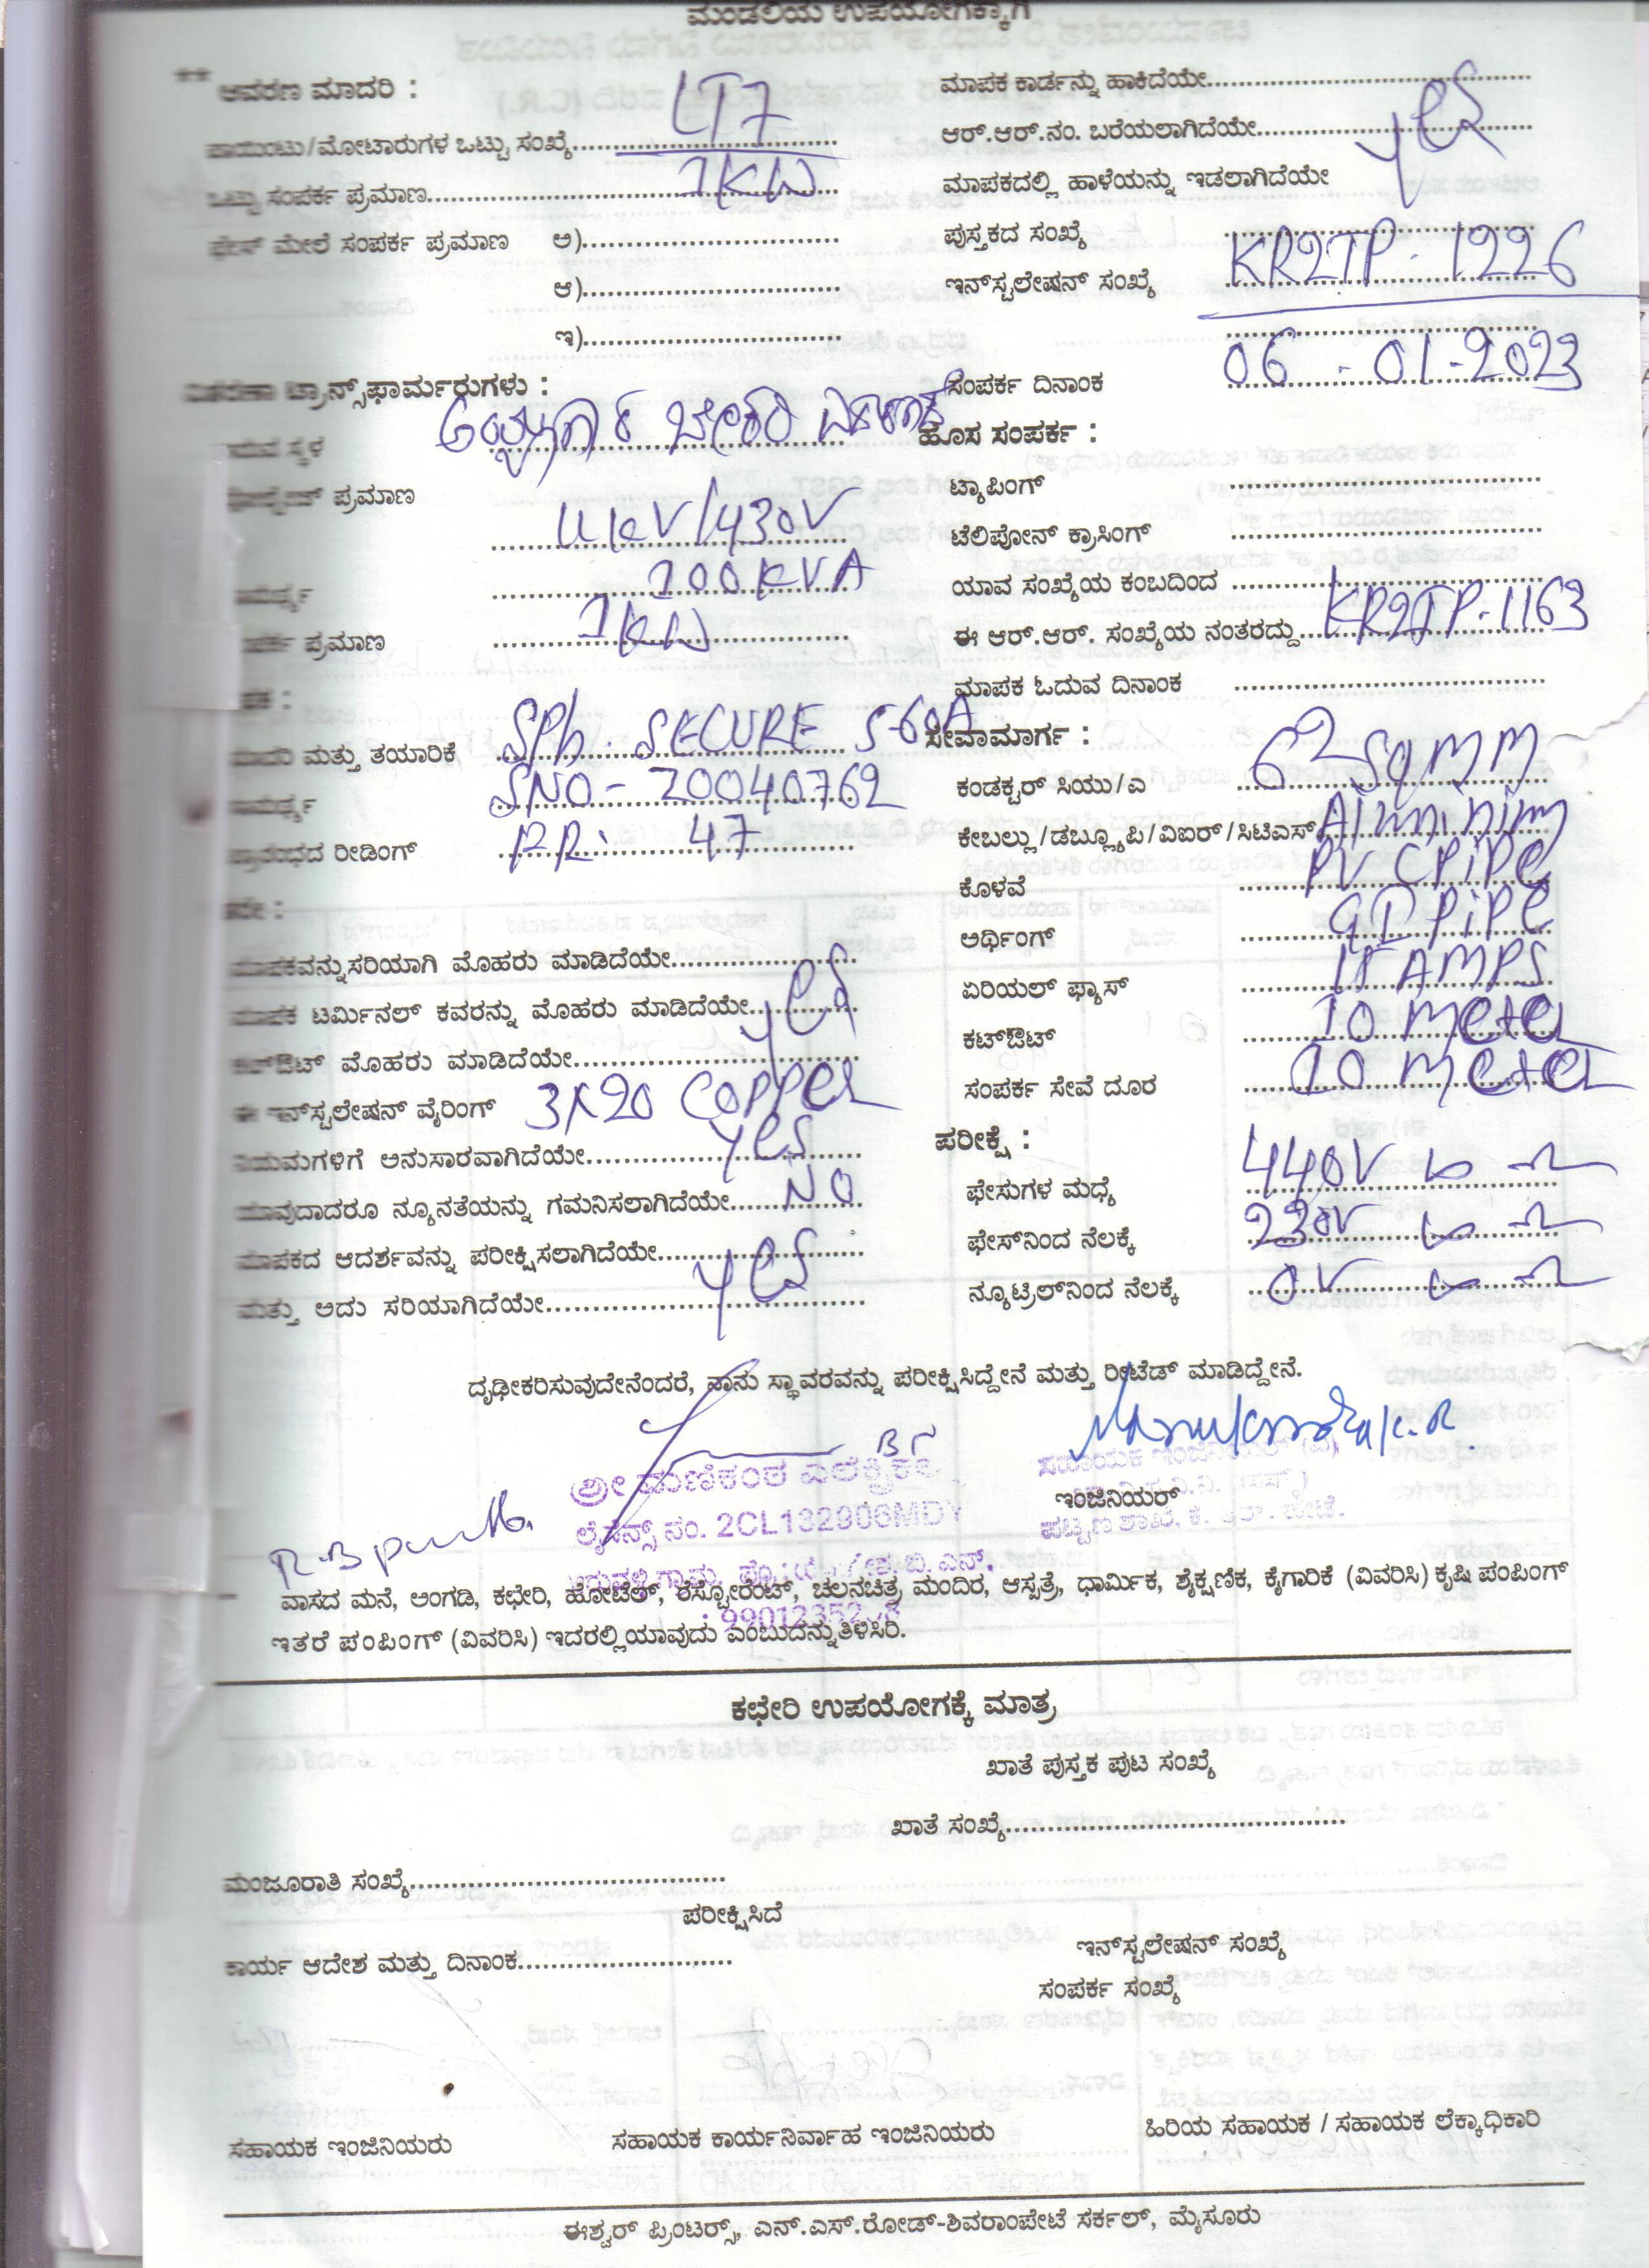 ಮಂಡಲಿಯ ಉಪಯೋಗಕ್ಕಾಗಿ
** ಆವರಣ ಮಾದರಿ : LT7
ಪಾಯಿಂಟು/ಮೋಟಾರುಗಳ ಒಟ್ಟು ಸಂಖ್ಯೆ
ಒಟ್ಟು ಸಂಪರ್ಕ ಪ್ರಮಾಣ 1KW
ಫೇಸ್ ಮೇಲೆ ಸಂಪರ್ಕ ಪ್ರಮಾಣ ಅ)
ಆ)
ಇ)
ವಿತರಣಾ ಟ್ರಾನ್ಸ್‌ಫಾರ್ಮರುಗಳು :
ಸ್ಥಳ ಬೇಕರಿ
ಪ್ರಮಾಣ
11KV/430V
ಸಾಮರ್ಥ್ಯ 100KVA
ಪ್ರಮಾಣ 1KW
ಮಾದರಿ ಮತ್ತು ತಯಾರಿಕೆ SPh. SECURE 5-60A
ಸಾಮರ್ಥ್ಯ SNO- 20040762
ಪ್ರಾರಂಭದ ರೀಡಿಂಗ್ 47
ಮಾಪಕವನ್ನು ಸರಿಯಾಗಿ ಮೊಹರು ಮಾಡಿದೆಯೇ
ಮಾಪಕ ಟರ್ಮಿನಲ್ ಕವರನ್ನು ಮೊಹರು ಮಾಡಿದೆಯೇ yes
ಕಟ್‌ಔಟ್ ಮೊಹರು ಮಾಡಿದೆಯೇ
ಈ ಇನ್‌ಸ್ಟಲೇಷನ್ ವೈರಿಂಗ್ 3X20 COPPER
ನಿಯಮಗಳಿಗೆ ಅನುಸಾರವಾಗಿದೆಯೇ yes
ಯಾವುದಾದರೂ ನ್ಯೂನತೆಯನ್ನು ಗಮನಿಸಲಾಗಿದೆಯೇ NO
ಮಾಪಕದ ಆದರ್ಶವನ್ನು ಪರೀಕ್ಷಿಸಲಾಗಿದೆಯೇ yes
ಮತ್ತು ಅದು ಸರಿಯಾಗಿದೆಯೇ
ಮಾಪಕ ಕಾರ್ಡನ್ನು ಹಾಕಿದೆಯೇ
ಆರ್.ಆರ್.ನಂ. ಬರೆಯಲಾಗಿದೆಯೇ yes
ಮಾಪಕದಲ್ಲಿ ಹಾಳೆಯನ್ನು ಇಡಲಾಗಿದೆಯೇ
ಪುಸ್ತಕದ ಸಂಖ್ಯೆ
ಇನ್‌ಸ್ಟಲೇಷನ್ ಸಂಖ್ಯೆ KR2TP. 1226
ಸಂಪರ್ಕ ದಿನಾಂಕ 06-01-2023
ಹೊಸ ಸಂಪರ್ಕ :
ಟ್ಯಾಪಿಂಗ್
ಟೆಲಿಪೋನ್ ಕ್ರಾಸಿಂಗ್
ಯಾವ ಸಂಖ್ಯೆಯ ಕಂಬದಿಂದ
ಈ ಆರ್.ಆರ್. ಸಂಖ್ಯೆಯ ನಂತರದ್ದು KR2TP.1163
ಮಾಪಕ ಓದುವ ದಿನಾಂಕ
ಸೇವಾಮಾರ್ಗ :
ಕಂಡಕ್ಟರ್ ಸಿಯು/ಎ Sqmm
ಕೇಬಲ್ಲು/ಡಬ್ಲ್ಯೂಪಿ/ವಿಐರ್/ಸಿಟಿಎಸ್ Alminim
ಕೊಳವೆ PVC PiPe
ಅರ್ಥಿಂಗ್ GI PiPe
ಏರಿಯಲ್ ಫ್ಯೂಸ್ 15 AMPS
ಕಟ್‌ಔಟ್ 10 Meter
ಸಂಪರ್ಕ ಸೇವೆ ದೂರ 10 Meter
ಪರೀಕ್ಷೆ :
ಫೇಸುಗಳ ಮಧ್ಯೆ 440V
ಫೇಸ್‌ನಿಂದ ನೆಲಕ್ಕೆ 230V
ನ್ಯೂಟ್ರಿಲ್‌ನಿಂದ ನೆಲಕ್ಕೆ 0V
ದೃಢೀಕರಿಸುವುದೇನೆಂದರೆ, ನಾನು ಸ್ಥಾವರವನ್ನು ಪರೀಕ್ಷಿಸಿದ್ದೇನೆ ಮತ್ತು ರೀಟೆಡ್ ಮಾಡಿದ್ದೇನೆ.
ಶ್ರೀ ಮಣಿಕಂಠ ಎಲೆಕ್ಟ್ರಿಕಲ್
ಲೈಸೆನ್ಸ್ ನಂ. 2CL132906MDY
ಇಂಜಿನಿಯರ್
ವಾಸದ ಮನೆ, ಅಂಗಡಿ, ಕಛೇರಿ, ಹೋಟೆಲ್, ರೆಸ್ಟೋರೆಂಟ್, ಚಲನಚಿತ್ರ ಮಂದಿರ, ಆಸ್ಪತ್ರೆ, ಧಾರ್ಮಿಕ, ಶೈಕ್ಷಣಿಕ, ಕೈಗಾರಿಕೆ (ವಿವರಿಸಿ) ಕೃಷಿ ಪಂಪಿಂಗ್
ಇತರೆ ಪಂಪಿಂಗ್ (ವಿವರಿಸಿ) ಇದರಲ್ಲಿ ಯಾವುದು ಎಂಬುದನ್ನು ತಿಳಿಸಿರಿ.
ಕಛೇರಿ ಉಪಯೋಗಕ್ಕೆ ಮಾತ್ರ
ಖಾತೆ ಪುಸ್ತಕ ಪುಟ ಸಂಖ್ಯೆ
ಖಾತೆ ಸಂಖ್ಯೆ
ಮಂಜೂರಾತಿ ಸಂಖ್ಯೆ
ಪರೀಕ್ಷಿಸಿದೆ
ಕಾರ್ಯ ಆದೇಶ ಮತ್ತು ದಿನಾಂಕ
ಇನ್‌ಸ್ಟಲೇಷನ್ ಸಂಖ್ಯೆ
ಸಂಪರ್ಕ ಸಂಖ್ಯೆ
ಸಹಾಯಕ ಇಂಜಿನಿಯರು ಸಹಾಯಕ ಕಾರ್ಯನಿರ್ವಾಹ ಇಂಜಿನಿಯರು ಹಿರಿಯ ಸಹಾಯಕ / ಸಹಾಯಕ ಲೆಕ್ಕಾಧಿಕಾರಿ
ಈಶ್ವರ್ ಪ್ರಿಂಟರ್ಸ್, ಎನ್.ಎಸ್.ರೋಡ್-ಶಿವರಾಂಪೇಟೆ ಸರ್ಕಲ್, ಮೈಸೂರು